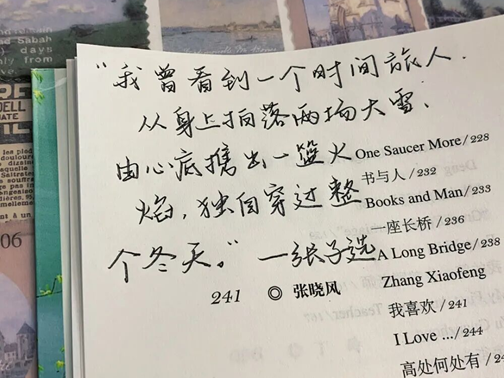 Sabah
days
"我曾看到一个时间旅人.
从身上拍落两场大雪、
由心底携出一篮火
焰,独自穿过整
个冬天。" —张子选
One Saucer More/228
书与人/232
Books and Man/233
一座长桥/236
A Long Bridge/238
241 ◎ 张晓风
Zhang Xiaofeng
我喜欢/241
I Love .../244
高处何处有/24
06